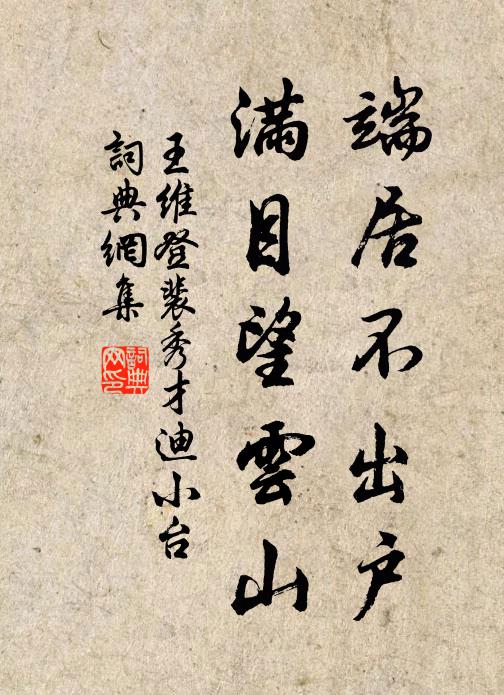 端居不出户
滿目望雲山
王維登裴秀才迪小台
詞典網集
詞典网印